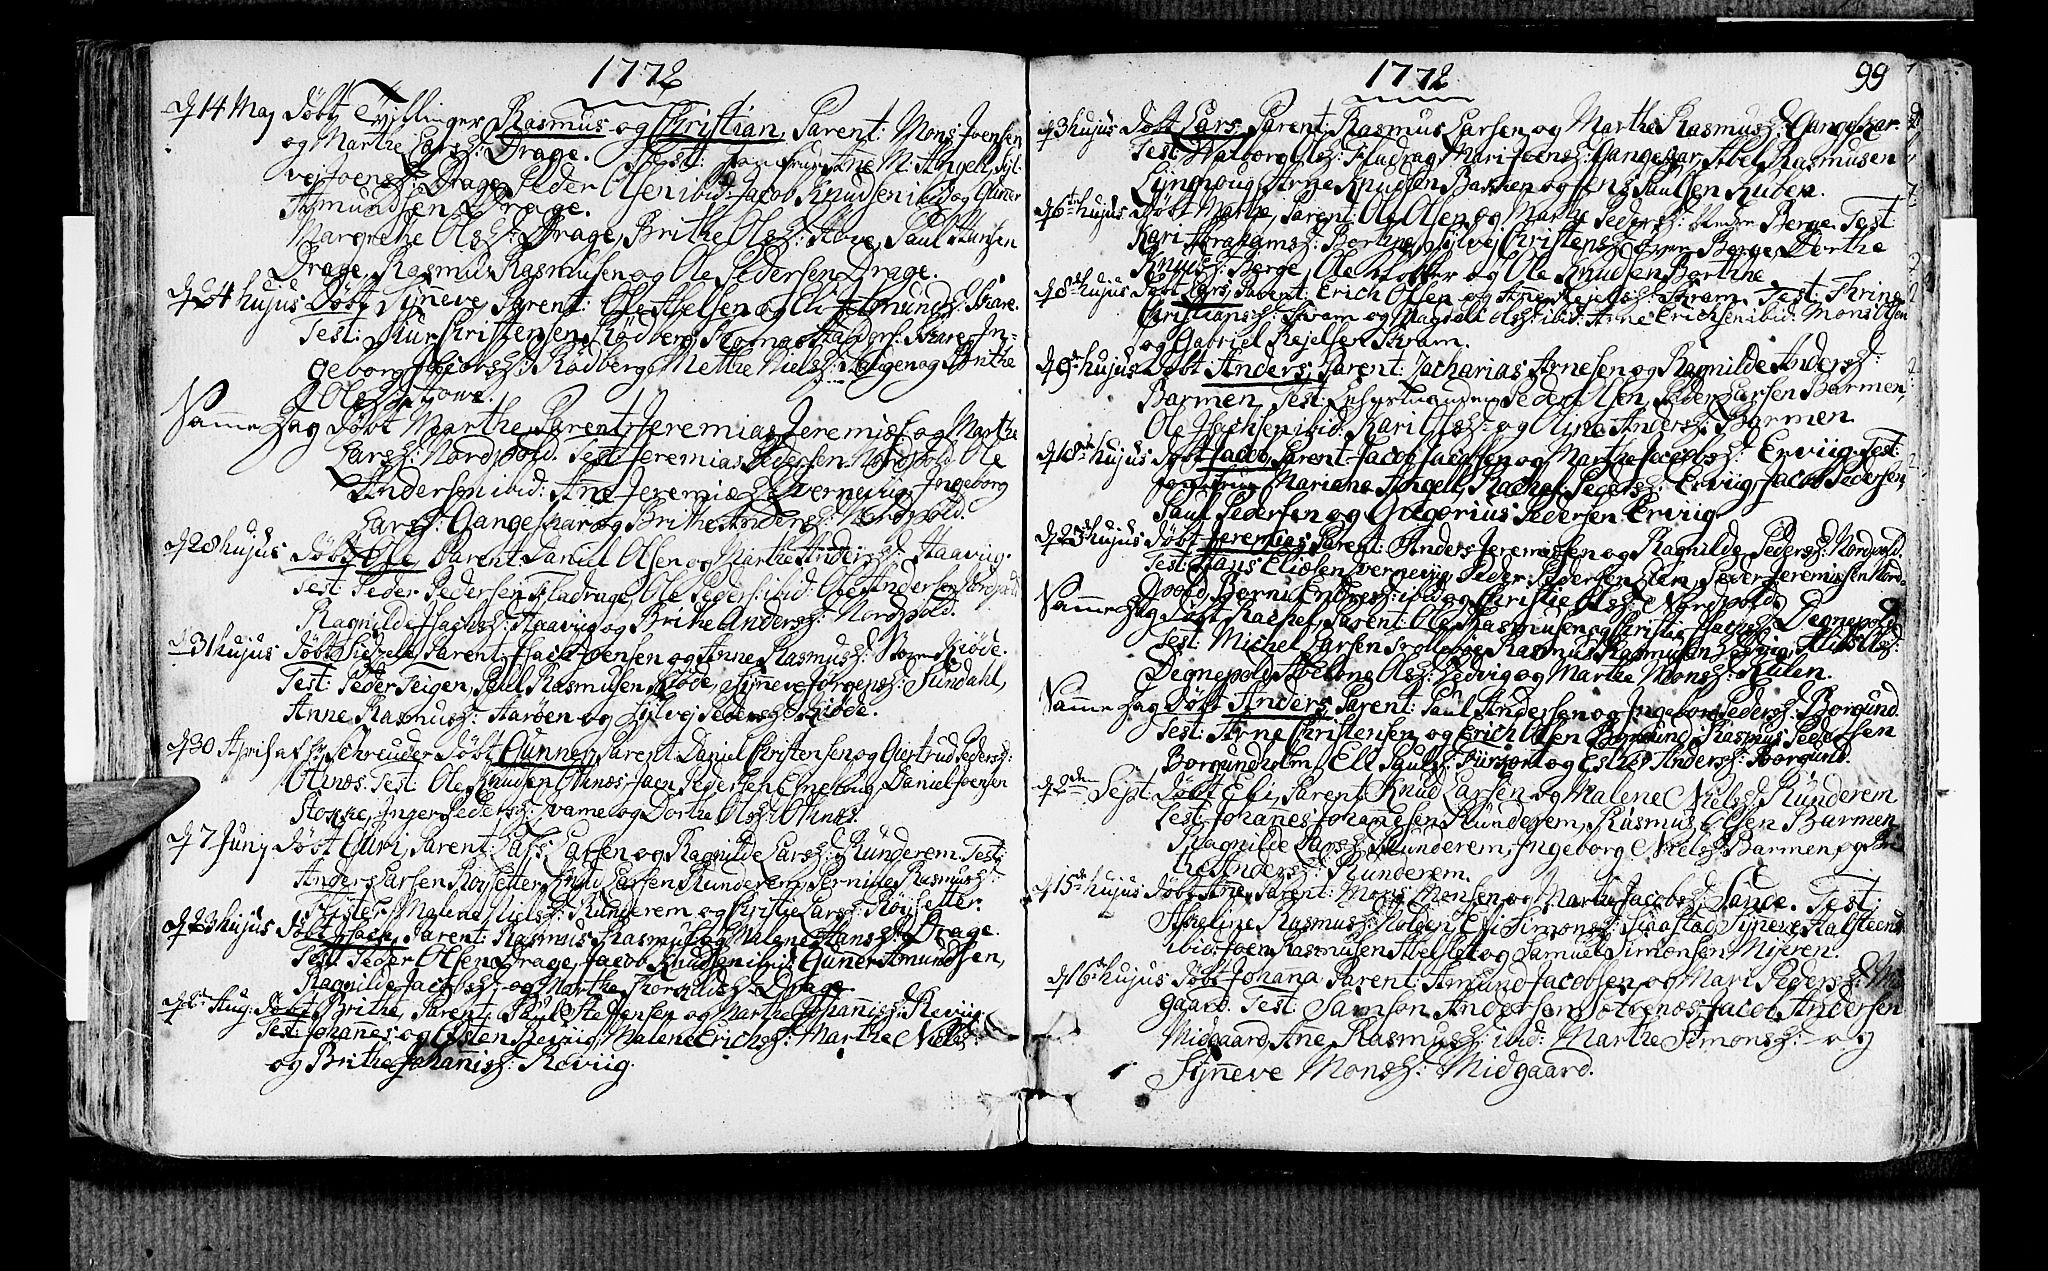 1772
d 14 Maj Døbt Tvillinger Rasmus og Christian, Parent: Mons Joensen
og Marthe Larsd: Drage. Test: Ane M: Angell, Syl-
vej Joensd: Drage, Peder Olsen ibid: Jacob Knudsen ibid og Guner
Amundsen Drage.
Margrethe Olsd: Drage, Brithe Olsd: Hove, Paul Hansen
Drage, Rasmus Rasmusen og Ole Pedersen Drage.
d 24 hujus Døbt Syneve, Parent: Ole Abelsen og Eli Amundsd: Schare.
Test: Christensen Rødberg, Rasmus Schare, In-
geborg Rødberg, Methe Nielsd: Haugen og Brithe
Olsd: Hove.
Samme Dag Døbt Marthe Parent: Jeremias Jeremiæs: og Marthe
Larsd: Nordpold. Test: Jeremias Pedersen Nordpold, Ole
Andersen ibid: Ane Jeremiæd: Ingeborg
Larsd: Gangeschar og Brithe Andersd: Nordpold.
d 28 hujus Døbt Ole, Parent: Daniel Olsen og Marthe Andersd: Haavig.
Test: Peder Pedersen Fladrage, Ole Peders: ibid: Ole Andersen Nordpold
Ragnilde Jachsd: Haavig og Brithe Andersd: Nordpold.
d 31 hujus Døbt Sidzele, Parent: Jacob Joensen og Anne Rasmusd: Kiøde.
Test: Peder Teigen, Paul Rasmusen Kiøde, Syneve Jørgensd: Sundahl,
Anne Rasmusd: Aarøen og Sylvej Pedersd: Kiøde.
d 30 April af Hr Schreuder Døbt Gunner, Parent: Daniel Christensen og Giertrud Pedersd:
Otnes. Test: Ole Knudsen Otnes, Jaen Pedersen Daniel Joensen
Stokke, Inger Pedersd: og Dorthe Olsd: Otnes.
d 7 Junj Døbt Guri, Parent: Lars Larsen og Ragnilde Larsd: Runderem. Test:
Anders Larsen Roysetter, Knud Larsen Runderem, Pernille Rasmusd:
Malene Nielsd: Runderem og Christie Larsd: Roysetter.
d 23 hujus Døbt Jach, Parent: Rasmus Rasmus: og Malene Hansd: Drage.
Test: Peder Olsen Drage, Jacob Knudsen ibid: Guner Amundsen,
Ragnilde Jacobsd: og Marthe Drage.
d 2 Aug: Døbt Brithe, Parent: Paul Steffensen og Marthe Johanisd: Reviig.
Test: Johanes og Østen Reviig, Malene Erichsd: Marthe Nielsd:
og Brithe Johanisd: Reviig.
1772
99
d 3 hujus Døbt Lars, Parent: Rasmus Larsen og Marthe Rasmusd: Gangeschar.
Test: Walborg Olsd: Fladrag, Mari Joensd: Gangeschar, Abel Rasmusen
Lynghoug, Arne Knudsen Barmen og Jens Paulsen Ruden.
d 6te hujus Døbt Marthe, Parent: Ole Olsen og Marthe Pedersd: Berge. Test:
Kari Abrahamsd: Borthne, Sylvej Christensd: Berge, Dorthe
Knudsd: Berge, Ole og Ole Knudsen Borthne
d 8de hujus Døbt Lars, Parent: Erich Olsen og Ane Rejelsd: Schram. Test: Thrine
Christiansd: Schram og Magdeli Olsd: ibid: Arne Erichsen ibid: Mons Olsen
og Gabriel Rejelsen Schram.
d 9de hujus Døbt Anders, Parent: Zacharias Arnesen og Ragnilde Andersd:
Barmen, Test: Peder Olsen, Peder Larsen Barmen,
Ole Jachsen ibid: Kari Olsd: og Olina Andersd: Barmen.
d 18de hujus Døbt Jacob, Parent: Jacob Jacobsen og Marthe Jacobsd: Erviig. Test:
Mariane Angell, Rachel Pedersd: Erviig, Jacob Pedersen,
Paul Pedersen og Gregorius Pedersen Erviig
d 23 hujus Døbt Jeremias, Parent: Anders Jeremiæsen og Ragnilde Pedersd: Nordpold.
Test: Hans Eliæsen Peder Pedersen Peder Jeremissen Nord-
poold, Berni Endresd: ibid og Christie Olsd: Nordpold
Samme Dag Døbt Rachel, Parent: Ole Rasmusen og Christie Degnepold.
Test: Michel Larsen Rasmus Rasmusen Olsd:
Degnepold, Abelone Olsd: Ledvig og Marthe Monsd: Rulen.
Samme Dag Døbt Anders, Parent: Paul Andersen og Ingeborg Pedersd: Borgund.
Test: Arne Christensen og Erich Olsen Borgund, Rasmus Pedersen
Borgundholm, Eli Paulsd: og Esther Andersd: Borgund.
d 2den Sept: Døbt Eli, Parent: Knud Larsen og Malene Nielsd: Runderem
Test: Johanes Johanesen Runderem, Rasmus Olsen Barmen
Ragnilde Larsd: Runderem, Ingeborg Nielsd: Barmen og Bri-
the Andersd: Runderem.
d 15de hujus Døbt Ane, Parent: Mons Monsen og Marthe Jacobsd: Sande. Test:
Abeline Rasmusd: Eli Simonsd: Syneve Halsteensd
ibid: Joen Rasmusen og Samuel Simonsen Mieren.
d 16de hujus Døbt Johana Parent: Amund Jacobsen og Mari Pedersd: Mid-
gaard. Test: Samson Andersen Jacob Andersen
Midgaard, Ane Rasmusd: ibid: Marthe Simonsd: og
Syneve Monsd: Midgaard.